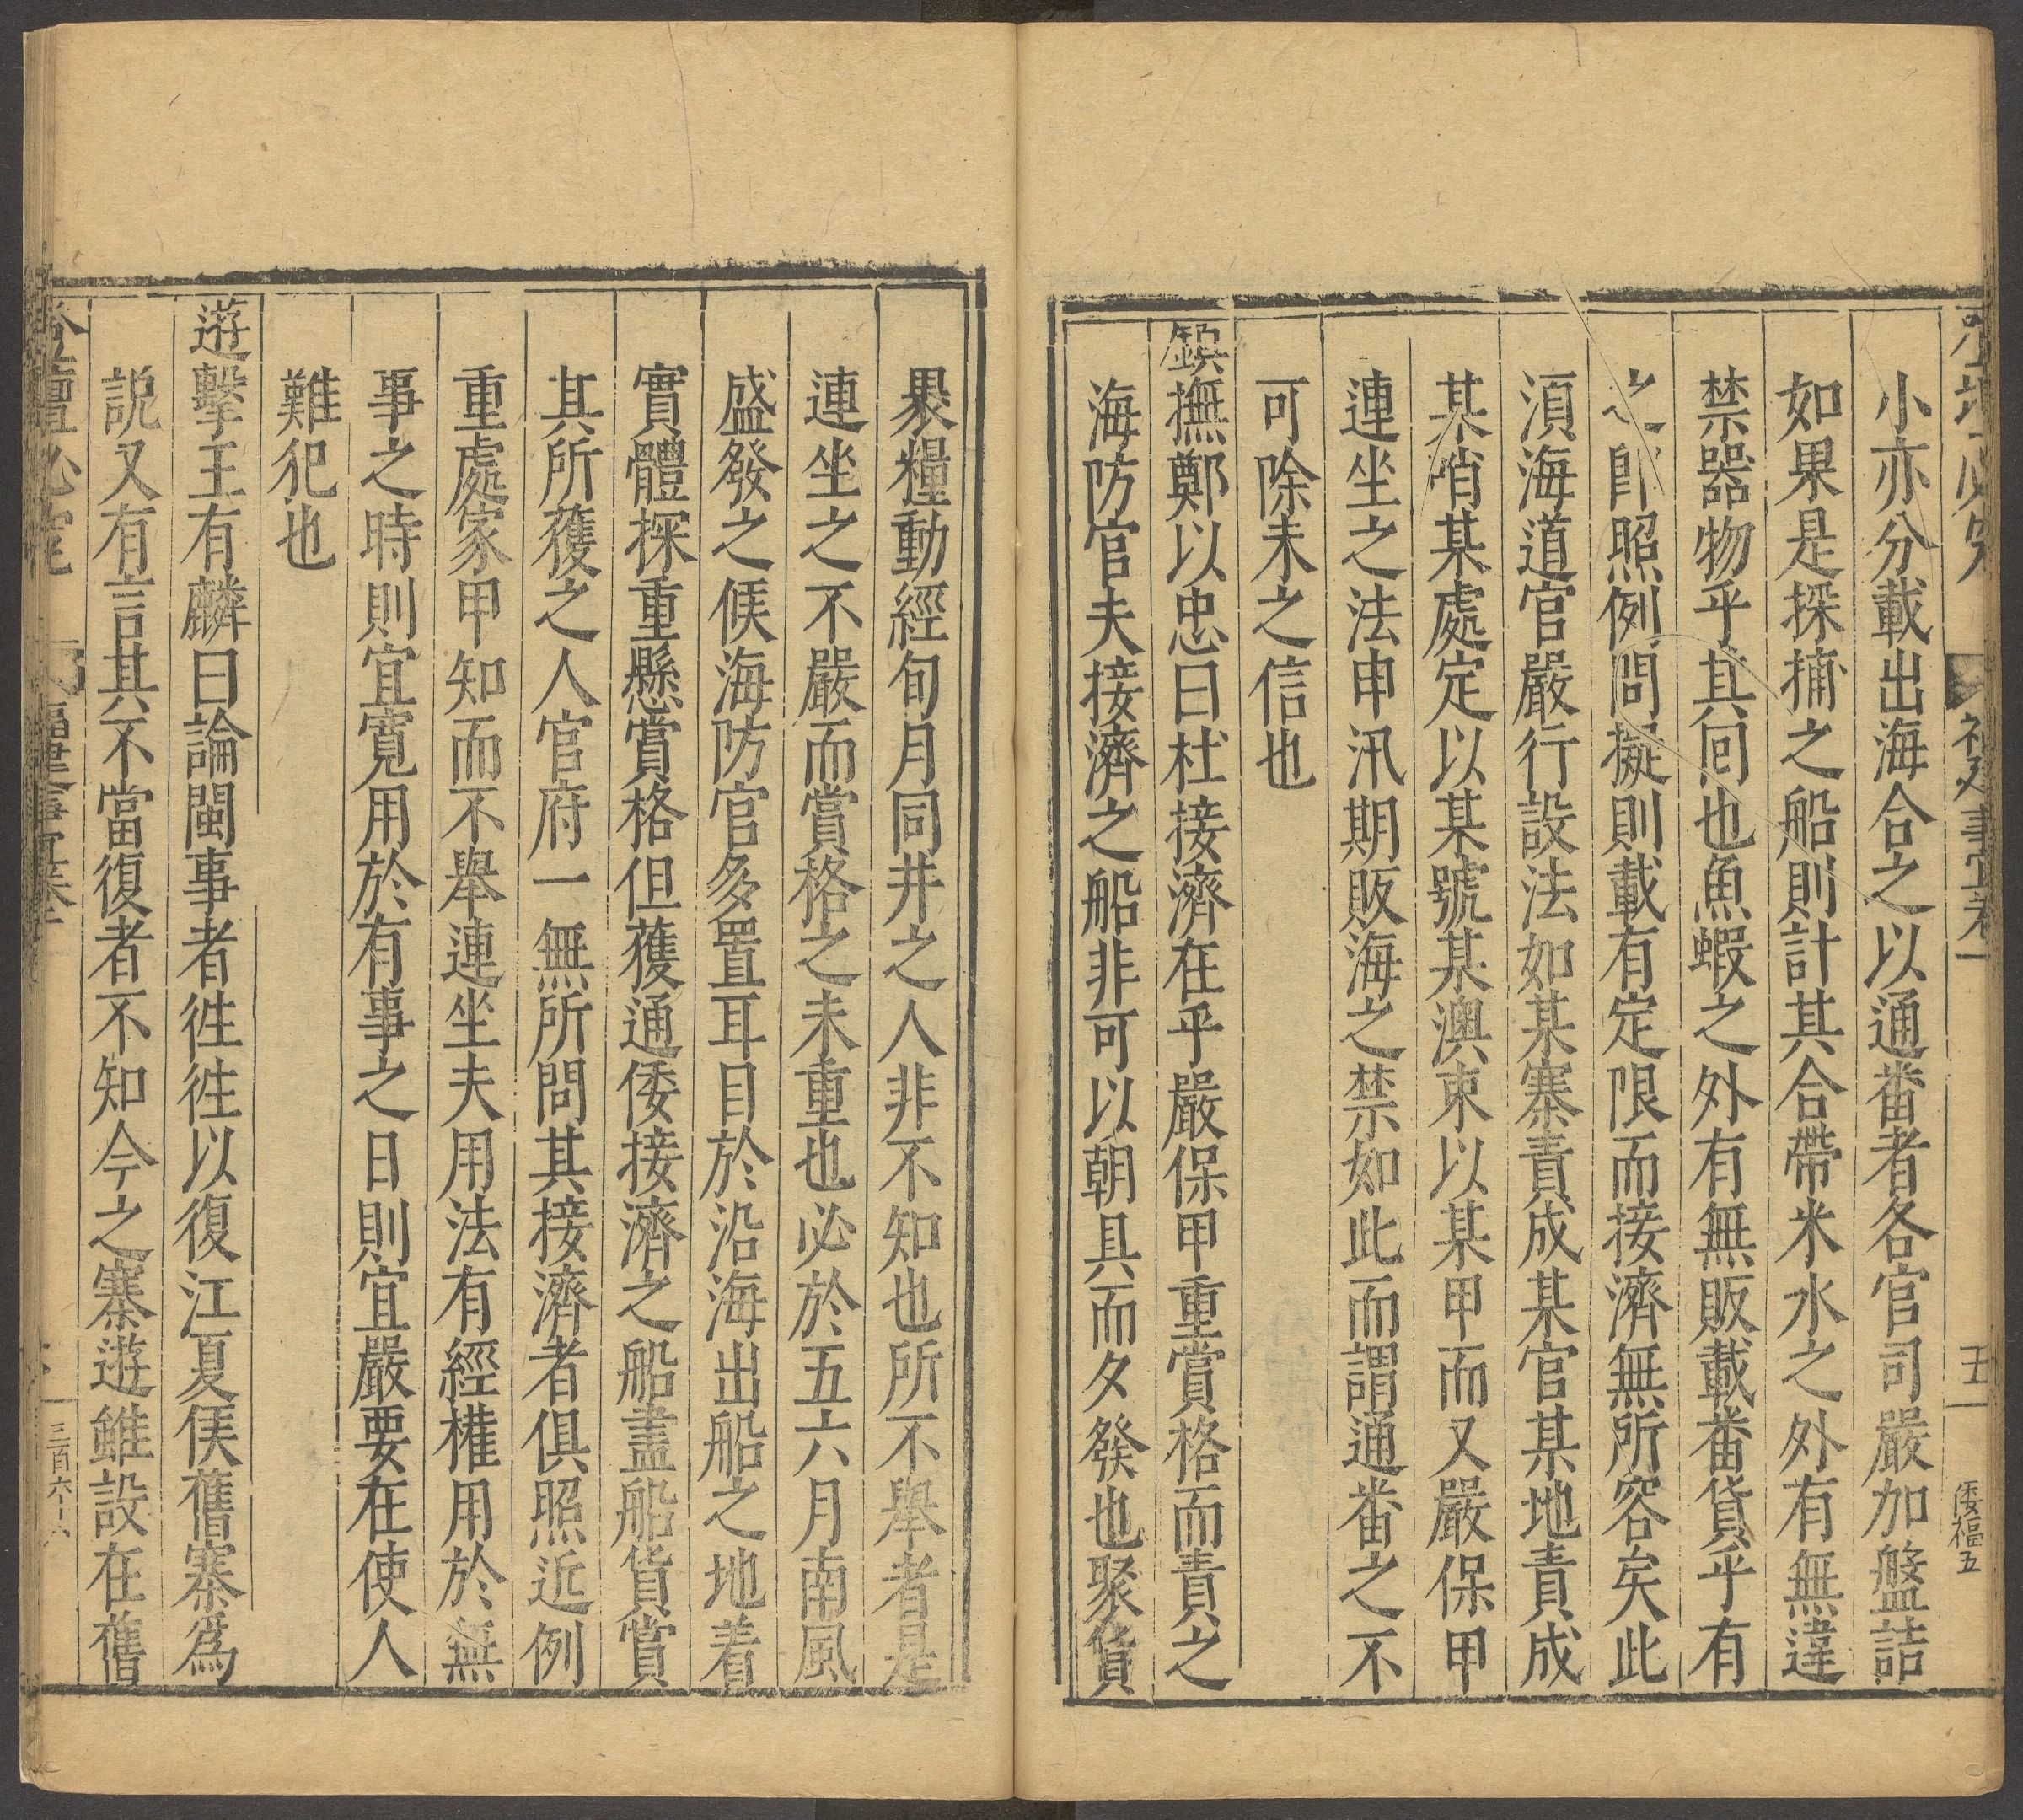 福建事宜卷一
五一
倭福五
小亦分載出海合之以通畨者各官司嚴加盤詰
如果是採捕之船則計其合帶米水之外有無違
禁器物乎其囘也魚蝦之外有無販載畨貨乎有
之即照例問擬則載有定限而接濟無所容矣此
湏海道官嚴行設法如某寨責成某官某地責成
某哨某處定以某號某澳束以某甲而又嚴保甲
連坐之法申汛期販海之禁如此而謂通畨之不
可除未之信也
鎮撫鄭以忠曰杜接濟在乎嚴保甲重賞格而責之
海防官夫接濟之船非可以朝具而夕發也聚貨
裹糧動經旬月同井之人非不知也所不舉者是
連坐之不嚴而賞格之未重也必於五六月南風
盛發之候海防官多置耳目於沿海出船之地着
實體探重懸賞格但獲通倭接濟之船盡船貨賞
其所獲之人官府一無所問其接濟者俱照近例
重處家甲知而不舉連坐夫用法有經權用於無
事之時則宜寬用於有事之日則宜嚴要在使人
難犯也
遊擊王有麟曰論閩事者徃徃以復江夏侯舊寨爲
説又有言其不當復者不知今之寨遊雖設在舊
福建事宜卷一
三百六十六